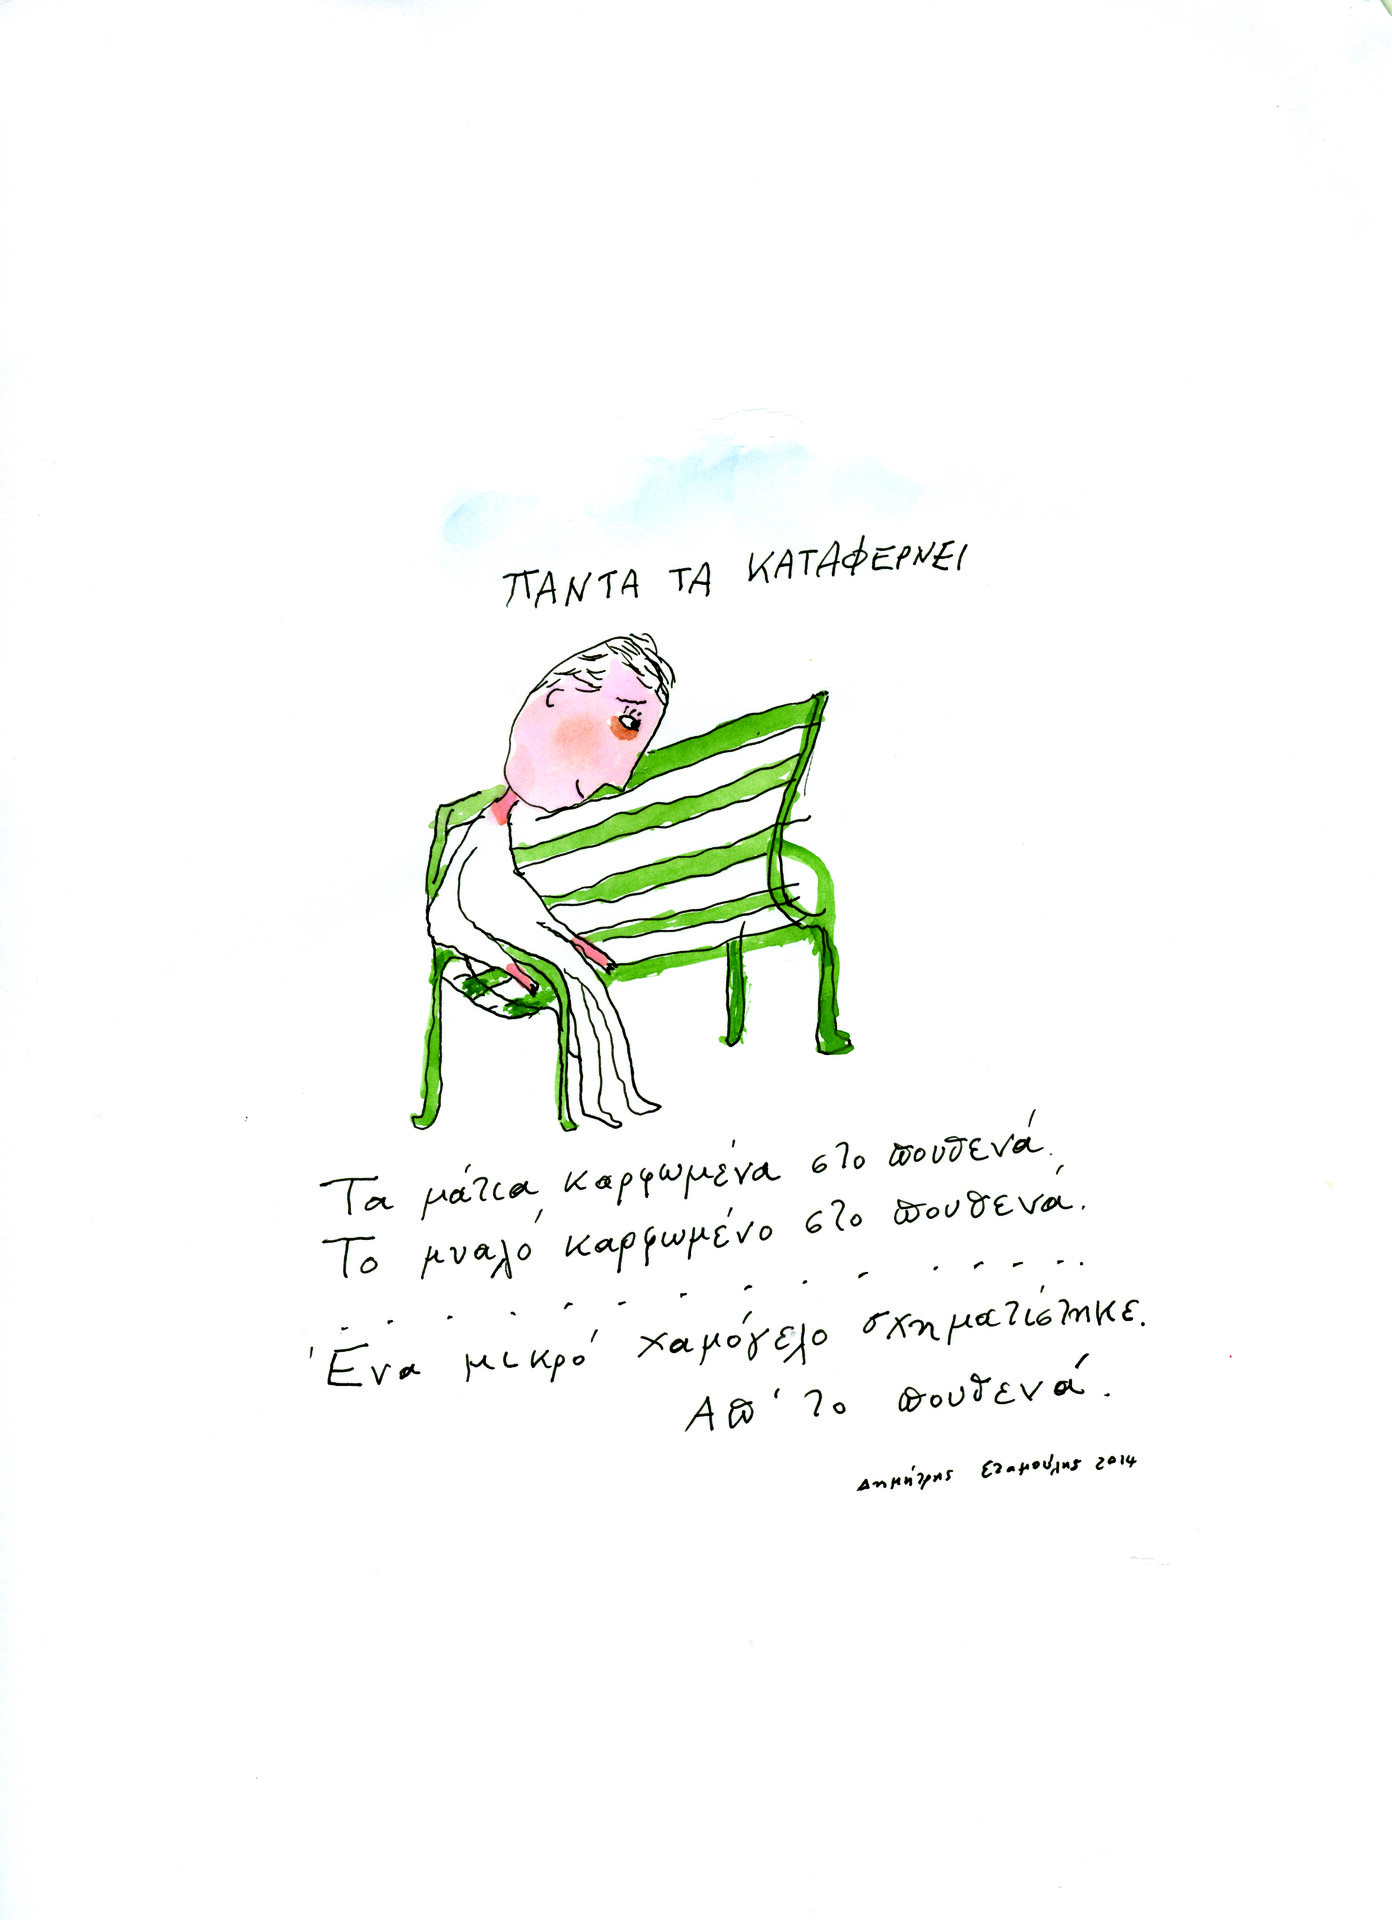 ΠΑΝΤΑ ΤΑ ΚΑΤΑΦΕΡΝΕΙ
Τα μάτια καρφωμένα στο πουθενά.
Το μυαλό καρφωμένο στο πουθενά.
. . . . . . . . . . . . . .
Ένα μικρό χαμόγελο σχηματίστηκε.
Απ' το πουθενά.
Δημήτρης Σταμούλης 2014